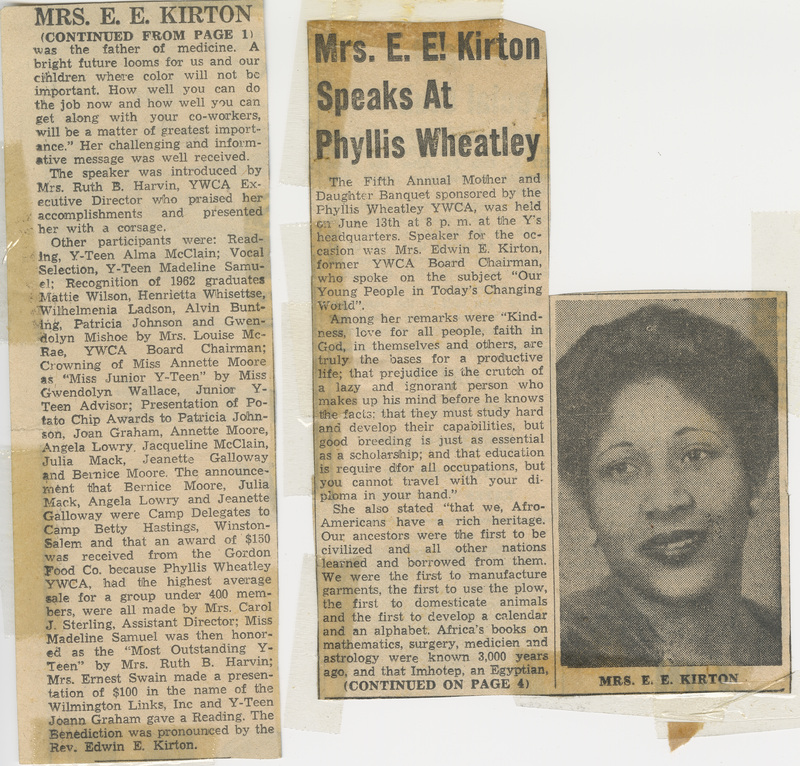 Mrs. E. E! Kirton
Speaks At
Phyllis Wheatley
The Fifth Annual Mother and
Daughter Banquet sponsored by the
Phyllis Wheatley YWCA, was held
on June 13th at 8 p. m. at the Y's
headquarters. Speaker for the oc-
casion was Mrs. Edwin E. Kirton,
former YWCA Board Chairman,
who spoke on the subject "Our
Young People in Today's Changing
World".
Among her remarks were "Kind-
ness, love for all people, faith in
God, in themselves and others, are
truly the bases for a productive
life; that prejudice is the crutch of
a lazy and ignorant person who
makes up his mind before he knows
the facts; that they must study hard
and develop their capabilities, but
good breeding is just as essential
as a scholarship; and that education
is require dfor all occupations, but
you cannot travel with your di-
ploma in your hand."
She also stated "that we, Afro-
Americans have a rich heritage.
Our ancestors were the first to be
civilized and all other nations
learned and borrowed from them.
We were the first to manufacture
garments, the first to use the plow,
the first to domesticate animals
and the first to develop a calendar
and an alphabet. Africa's books on
mathematics, surgery, medicien and
astrology were known 3,000 years
ago, and that Imhotep, an Egyptian,
(CONTINUED ON PAGE 4)
MRS. E. E. KIRTON
MRS. E. E. KIRTON
(CONTINUED FROM PAGE 1)
was the father of medicine. A
bright future looms for us and our
children where color will not be
important. How well you can do
the job now and how well you can
get along with your co-workers,
will be a matter of greatest import-
ance." Her challenging and inform-
ative message was well received.
The speaker was introduced by
Mrs. Ruth B. Harvin, YWCA Ex-
ecutive Director who praised her
accomplishments and presented
her with a corsage.
Other participants were: Read-
ing, Y-Teen Alma McClain; Vocal
Selection, Y-Teen Madeline Samu-
el; Recognition of 1962 graduates
Mattie Wilson, Henrietta Whisettse,
Wilhelmenia Ladson, Alvin Bunt-
ing, Patricia Johnson and Gwen-
dolyn Mishoe by Mrs. Louise Mc-
Rae, YWCA Board Chairman;
Crowning of Miss Annette Moore
as "Miss Junior Y-Teen" by Miss
Gwendolyn Wallace, Junior Y-
Teen Advisor; Presentation of Po-
tato Chip Awards to Patricia John-
son, Joan Graham, Annette Moore,
Angela Lowry, Jacqueline McClain,
Julia Mack, Jeanette Galloway
and Bernice Moore. The announce-
ment that Bernice Moore, Julia
Mack, Angela Lowry and Jeanette
Galloway were Camp Delegates to
Camp Betty Hastings, Winston-
Salem and that an award of $150
was received from the Gordon
Food Co. because Phyllis Wheatley
YWCA, had the highest average
sale for a group under 400 mem-
bers, were all made by Mrs. Carol
J. Sterling, Assistant Director; Miss
Madeline Samuel was then honor-
ed as the "Most Outstanding Y-
Teen" by Mrs. Ruth B. Harvin;
Mrs. Ernest Swain made a presen-
tation of $100 in the name of the
Wilmington Links, Inc and Y-Teen
Joann Graham gave a Reading. The
Benediction was pronounced by the
Rev. Edwin E. Kirton.